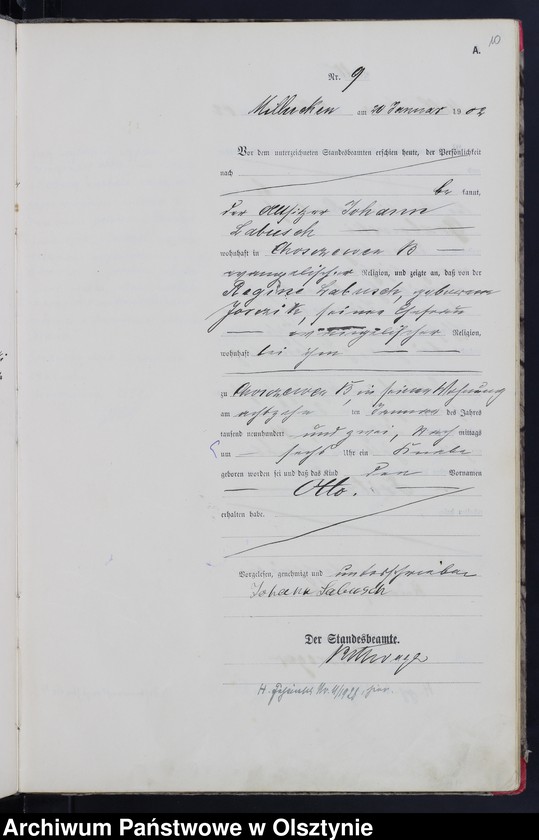 10
A.
Nr. 9
am 20 Januar 1902
Vor dem unterzeichneten Standesbeamten erschien heute, der Persönlichkeit
nach
be kannt,
der Altsitzer Johann
Labusch
wohnhaft in Choszewen B
evangelischer Religion, und zeigte an, daß von der
Regine Labusch, geborene
seiner Ehefrau
evangelischer Religion,
wohnhaft bei ihm
zu Choszewen B, in seiner Wohnung
am achtzehn ten Januar des Jahres
tausend neunhundert und zwei, Nach mittags
um sechs Uhr ein Knabe
geboren worden sei und daß das Kind den Vornamen
Otto.
erhalten habe.
Vorgelesen, genehmigt und unterschrieben
Johann Labusch
Der Standesbeamte.
H. Nr. 4/1921 hier.
Archiwum Państwowe w Olsztynie